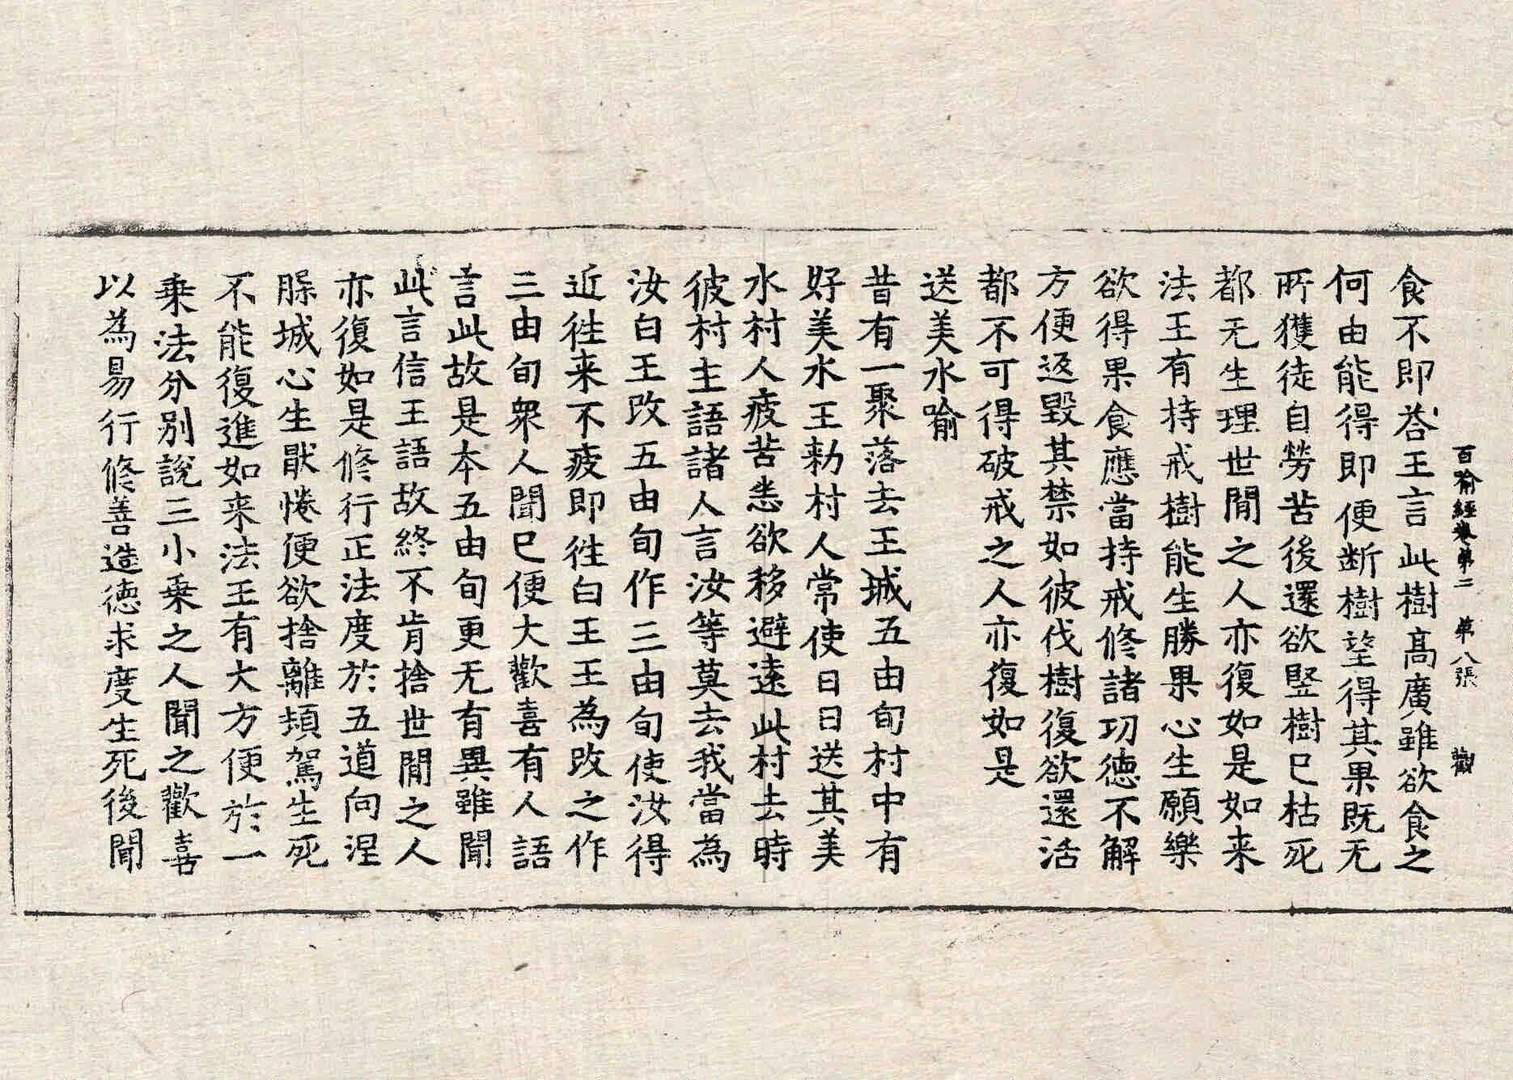 百喻經卷第二　第八張　觀
食不即荅王言此樹髙廣雖欲食之
何由能得即便断樹望得其果既无
所獲徒自勞苦後還欲竪樹已枯死
都无生理世閒之人亦復如是如来
法王有持戒樹能生勝果心生願樂
欲得果食應當持戒修諸功德不解
方便返毀其禁如彼伐樹復欲還活
都不可得破戒之人亦復如是
送美水喻
昔有一聚落去王城五由旬村中有
好美水王勑村人常使日日送其美
水村人疲苦悉欲移避遠此村去時
彼村主語諸人言汝等莫去我當為
汝白王改五由旬作三由旬使汝得
近徃来不疲即徃白王王為改之作
三由旬衆人聞已便大歡喜有人語
言此故是夲五由旬更无有異雖聞
此言信王語故終不肯捨世閒之人
亦復如是修行正法度於五道向涅
槃城心生猒惓便欲捨離頓駕生死
不能復進如来法王有大方便於一
乗法分別說三小乗之人聞之歡喜
以為易行修善造德求度生死後聞